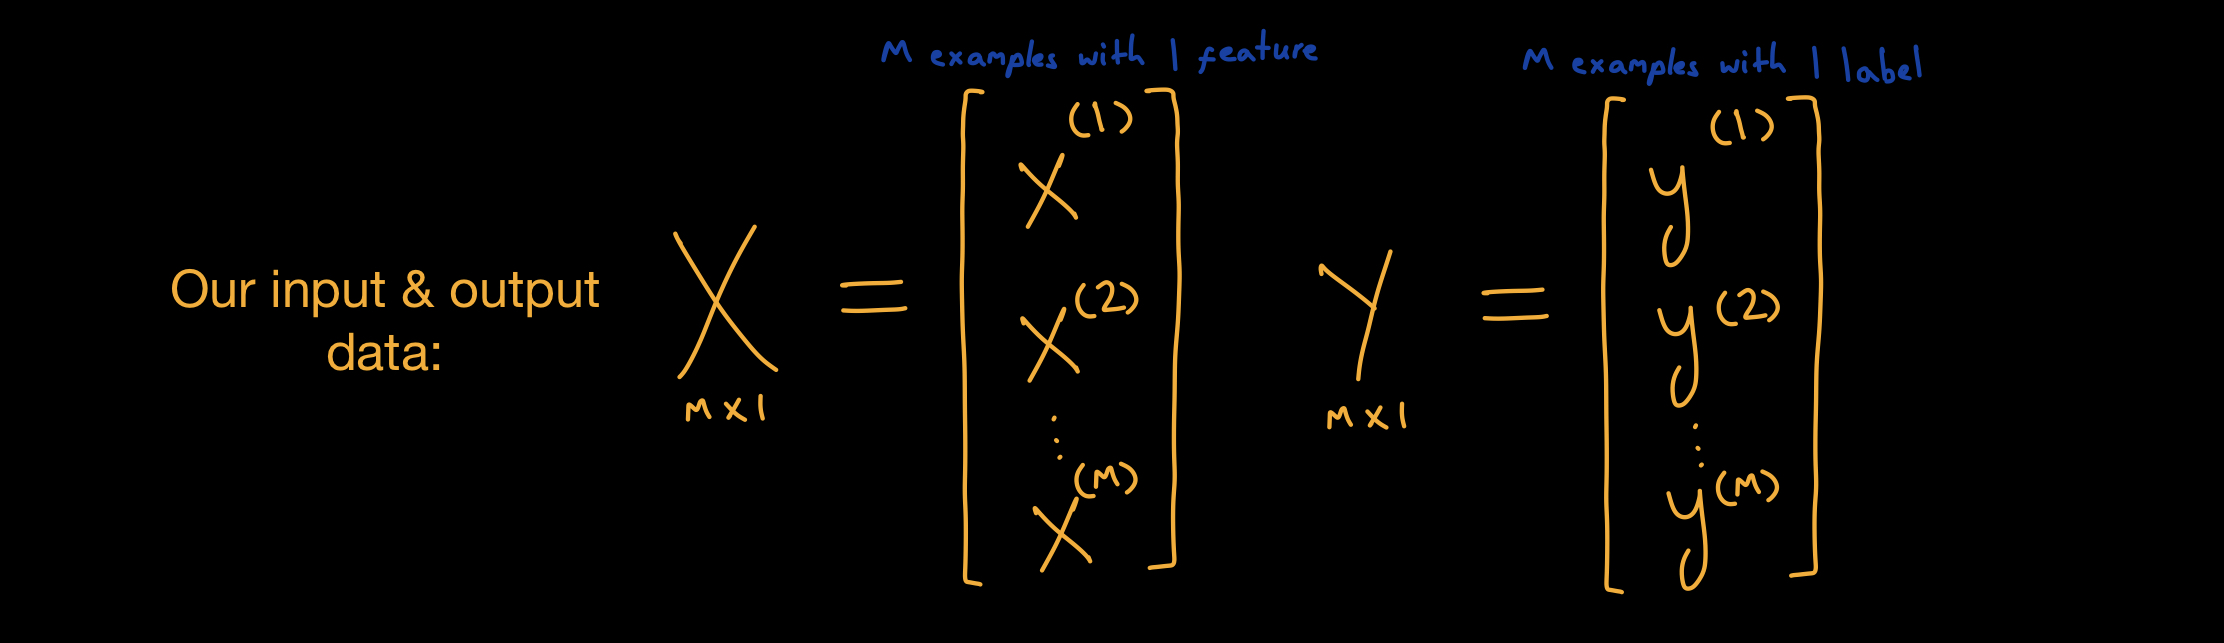 Our input & output
data:
X
M x 1
=
M examples with 1 feature
x^(1)
x^(2)
⋮
x^(M)
Y
M x 1
=
M examples with 1 label
y^(1)
y^(2)
⋮
y^(M)